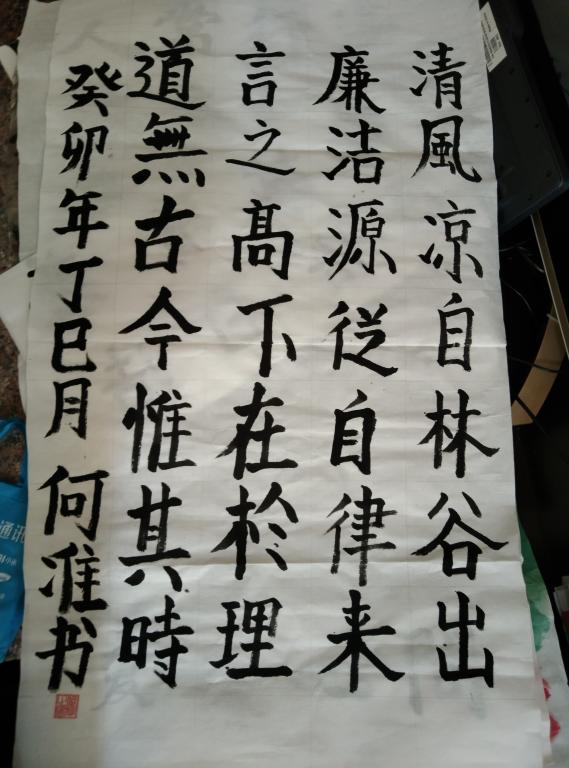 清風凉自林谷出
廉洁源從自律来
言之高下在於理
道無古今惟其時
癸卯年丁巳月 何准书
通讯